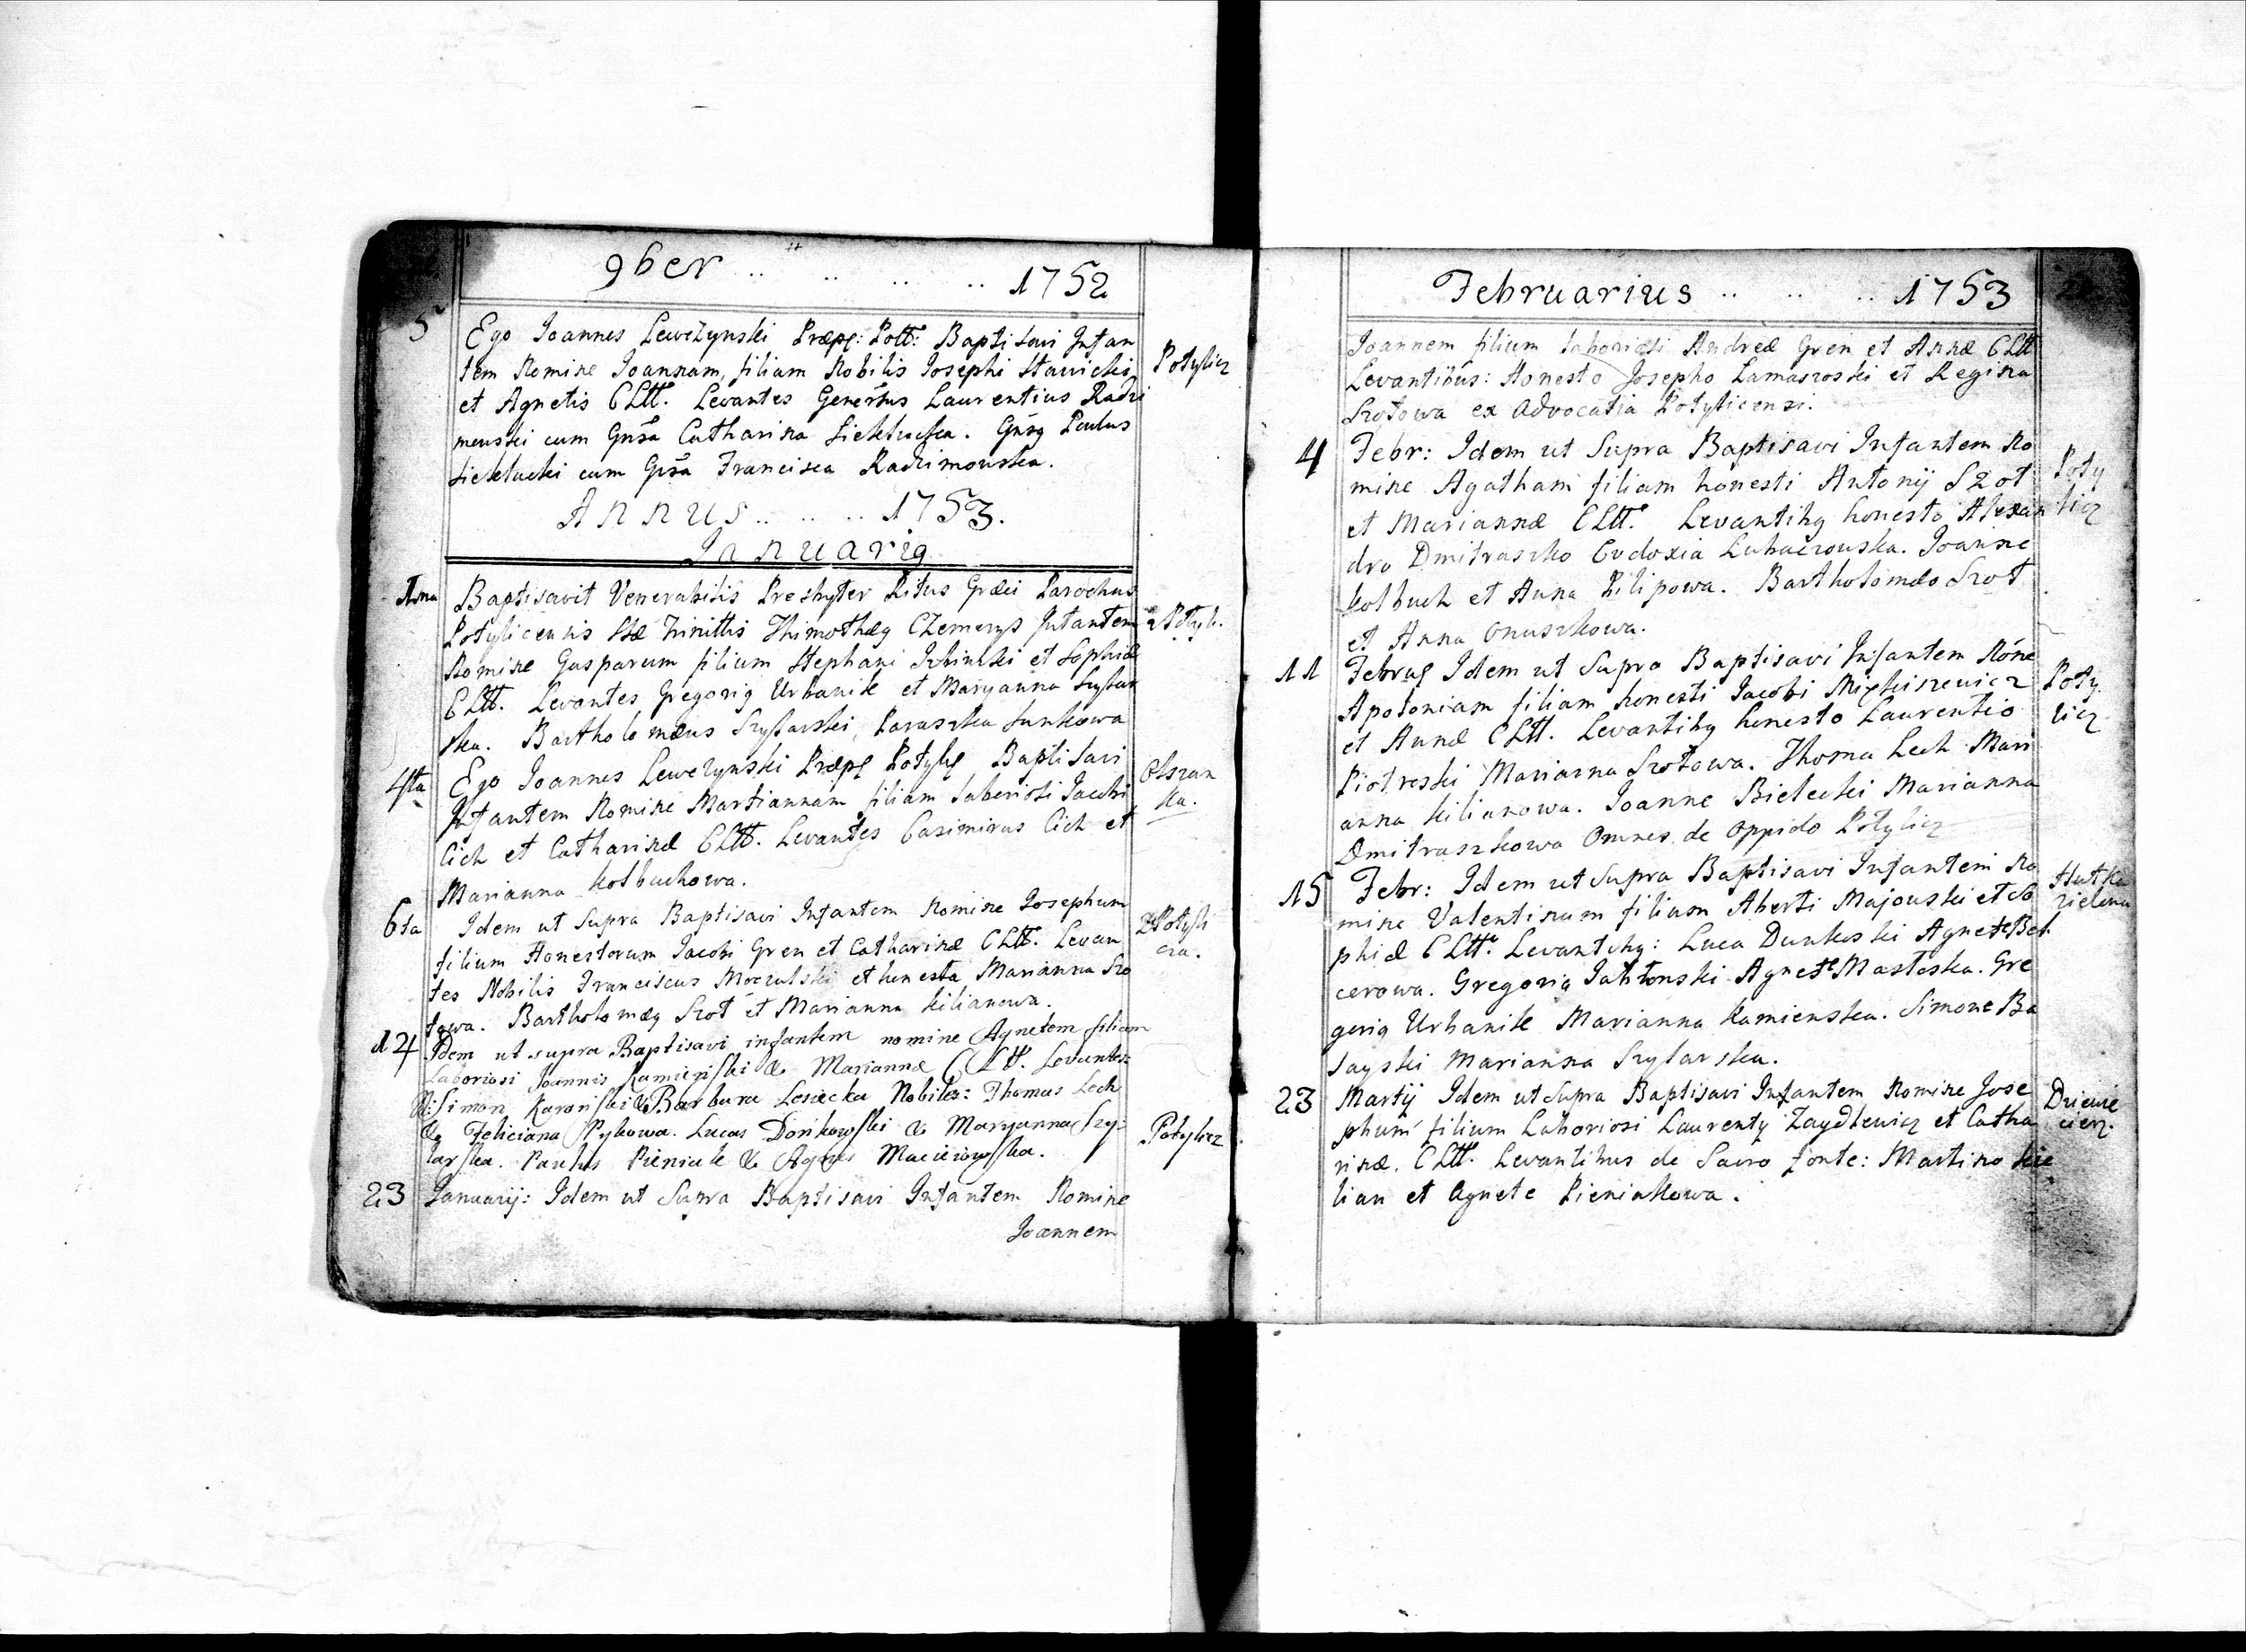 9ber .. .. .. .. 1752
5 Ego Joannes Lewczynski Præpę: Pott: Baptisavi Infan
tem Nomine Joannam, filiam Nobilis Josephi Stawicki Potylicz
et Agnetis CLtt. Levantes Generosus Laurentius Radzi
mowski cum Gnsa Catharina Siekłucka. Gnsg Paulus
Siekłucki cum Gnsa Francisca Radzimowska.
Annus .. .. .. 1753.
Januarig
1ma Baptisavit Venerabilis Presbyter Ritus Græci Parochus
Potylicensis Stæ Trinittis Thimothæg Czemerys Infantem z Potyli.
Nomine Gasparum filium Stephani et Sophiæ
CLtt. Levantes Gregorig Urbanik et Maryanna Szylar
ska. Bartholomæus Szylarski, Paraszka Sunkowa
4ta Ego Joannes Lewczynski Præpę Potylę Baptisavi Olszan
Infantem Nomine Mariannam filiam Laboriosi Jacobi ka.
Cich et Catharinæ CLtt. Levantes Casimirus Cich et
Marianna Kołbuchowa.
6ta Idem ut Supra Baptisavi Infantem Nomine Josephum
filium Honestorum Jacobi Gren et Catharinæ CLtt. Levan z Potyli
tes Nobilis Franciscus Moczulski et honesta Marianna Szo cza.
towa. Bartholomæg Szot et Marianna Kilianowa.
12 Idem ut supra Baptisavi infantem nomine Agnetem filiam
Laboriosi Joannis Kamieński & Mariannæ CLtt. Levantes
N: Simon Karoński & Barbara Lesiecka Nobiles: Thomas Lech
& Feliciana Pylkowa. Lucas Dońkowski & Maryanna Szy- Potylicz
larska. Paulus Pieniak & Agnes Macierowska.
23 Januarij: Idem ut Supra Baptisavi Infantem Nomine
Joannem
Februarius .. .. .. 1753
Joannem filium laboriosi Andreæ Gren et Annæ CLtt
Levantibus: Honesto Josepho Tamaszoski et Regina
Szotowa ex Advocatia Potylicensi.
4 Febr: Idem ut Supra Baptisavi Infantem No
mine Agatham filiam honesti Antonij Szot Poty
et Mariannæ CLtt. Levantibg honesto Alexan licz
dro Dmitraszko Eudoxia Luhaczowska. Joanne
Kołbuch et Anna Pilipowa. Bartholomæo Szot
et Anna Onuszkowa.
11 Febrag Idem ut Supra Baptisavi Infantem Nóne
Apoloniam filiam honesti Jacobi Mickiszewicz Poty
et Annæ CLtt. Levantibg honesto Laurentio licz.
Piotroski Marianna Szotowa. Thoma Lech Mari
anna Kilianowa. Joanne Bielecki Marianna
Dmitraszkowa Omnes de Oppido Potylicz
15 Febr: Idem ut Supra Baptisavi Infantem No Hutka
mine Valentinum filium Alberti Majouski et So zielona
phiæ CLtt. Levantibg: Luca Dunkoski Agnete Bel
cerowa. Gregorig Jabłonski Agnete Mastoska. Gre
gorig Urbanik Marianna Kamienska. Simone Ba
sayski Marianna Szylarska.
23 Martij Idem ut Supra Baptisavi Infantem Nomine Jose Dziewie
phum filium Laboriosi Laurentij Zaydlewicz et Catha cierz.
rinæ. CLtt. Levantibus de Sacro fonte: Martino Kie
lian et Agnete Pieniakowa.